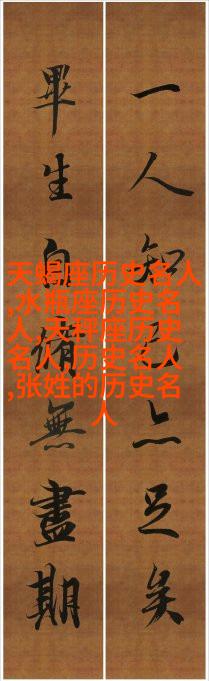 一人知己亦足矣
畢生自脩無盡期
天蝎座历史名人
,水瓶座历史名
人,天秤座历史
名人,历史名人
,张姓的历史名
人